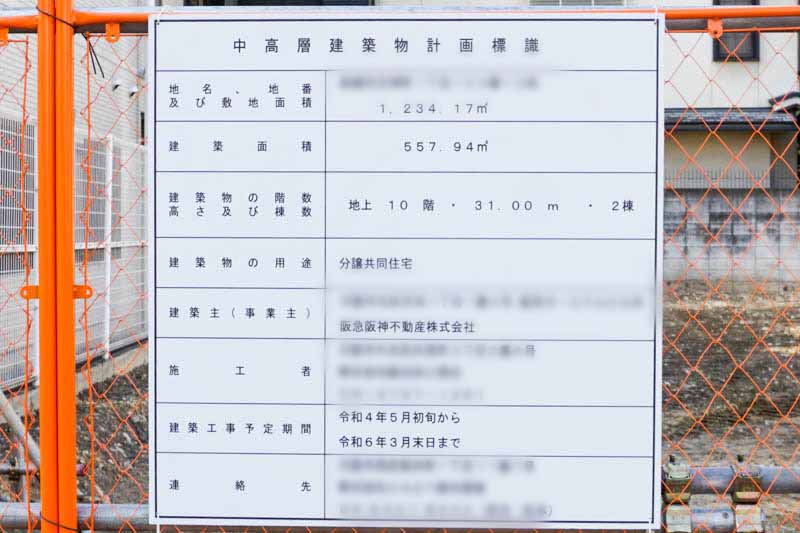 中高層建築物計画標識
地名、地番
及び敷地面積
1,234.17㎡
建築面積
557.94㎡
建築物の階数
高さ及び棟数
地上 10 階 ・ 31.00 m ・ 2棟
建築物の用途
分譲共同住宅
建築主(事業主)
阪急阪神不動産株式会社
施工者
建築工事予定期間
令和4年5月初旬から
令和6年3月末日まで
連絡先